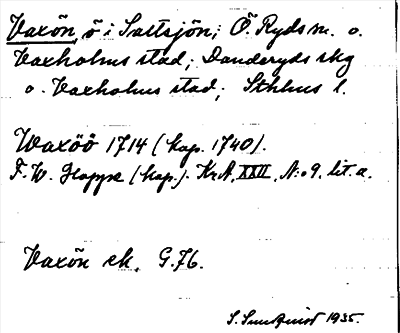 Vaxön, ö i Saltsjön; Ö. Ryds sn. o.
Vaxholms stad; Danderyds skg
o. Vaxholms stad; Sthlms l.
Waxöö 1714 (kop. 1740).
F. W. Hoppe (kop.). KrA, XXII, N:o 9. lit. a.
Vaxön ek. G.76.
S. Sundquist 1935.